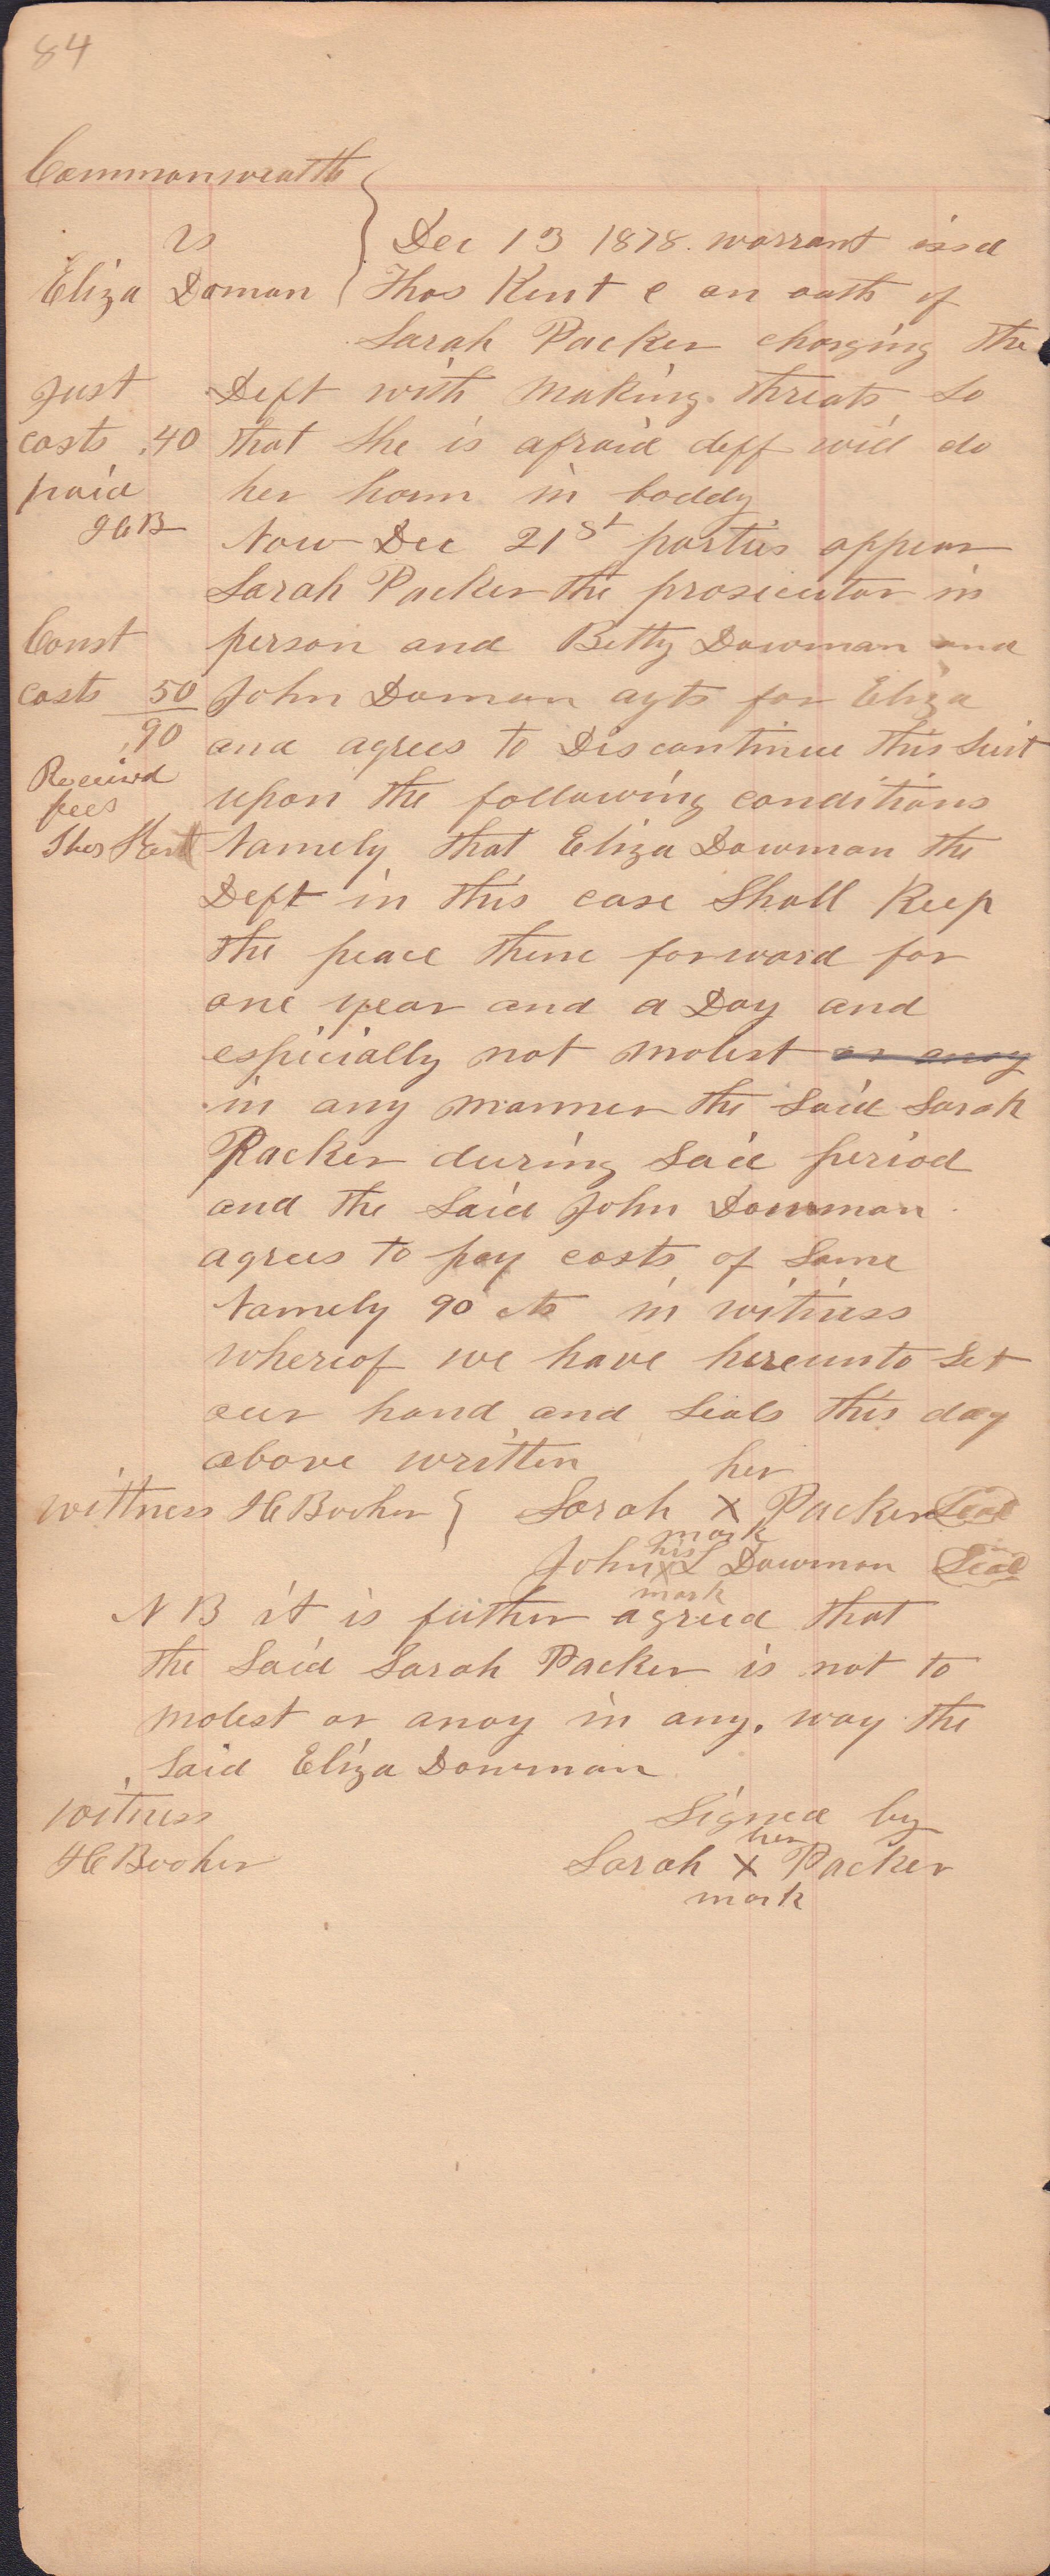 84
Commonwealth
vs
Eliza Doman
Dec 13 1878. warrant issd
Thos Kent c on oath of
Sarah Packer charging the
Deft with making threats so
that she is afraid deff will do
her harm in boddy
Just
costs .40
paid
Now Dec 21st parties appear
Sarah Packer the prosecutor in
person and Betty Dowman and
John Doman agts for Eliza
and agrees to Discontinue this suit
upon the following conditions
Const
costs 50
.90
Received
fees
Thos Kent
Namely that Eliza Dowman the
Deft in this case shall Keep
the peace thence forward for
one year and a Day and
espicially not molest or anoy
in any manner the said Sarah
Packer during said period
and the said John Dowman
agrees to pay costs of same
Namely 90 cts in witness
whereof we have hereunto set
our hand and seals this day
above written
her
wittness HC Booher } Sarah X Packer Seal
mark
his
John X L Dowman Seal
mark
NB it is futher agreed that
the said Sarah Packer is not to
molest or anoy in any. way the
said Eliza Dowman
witness
HC Booher
Signed by
her
Sarah X Packer
mark